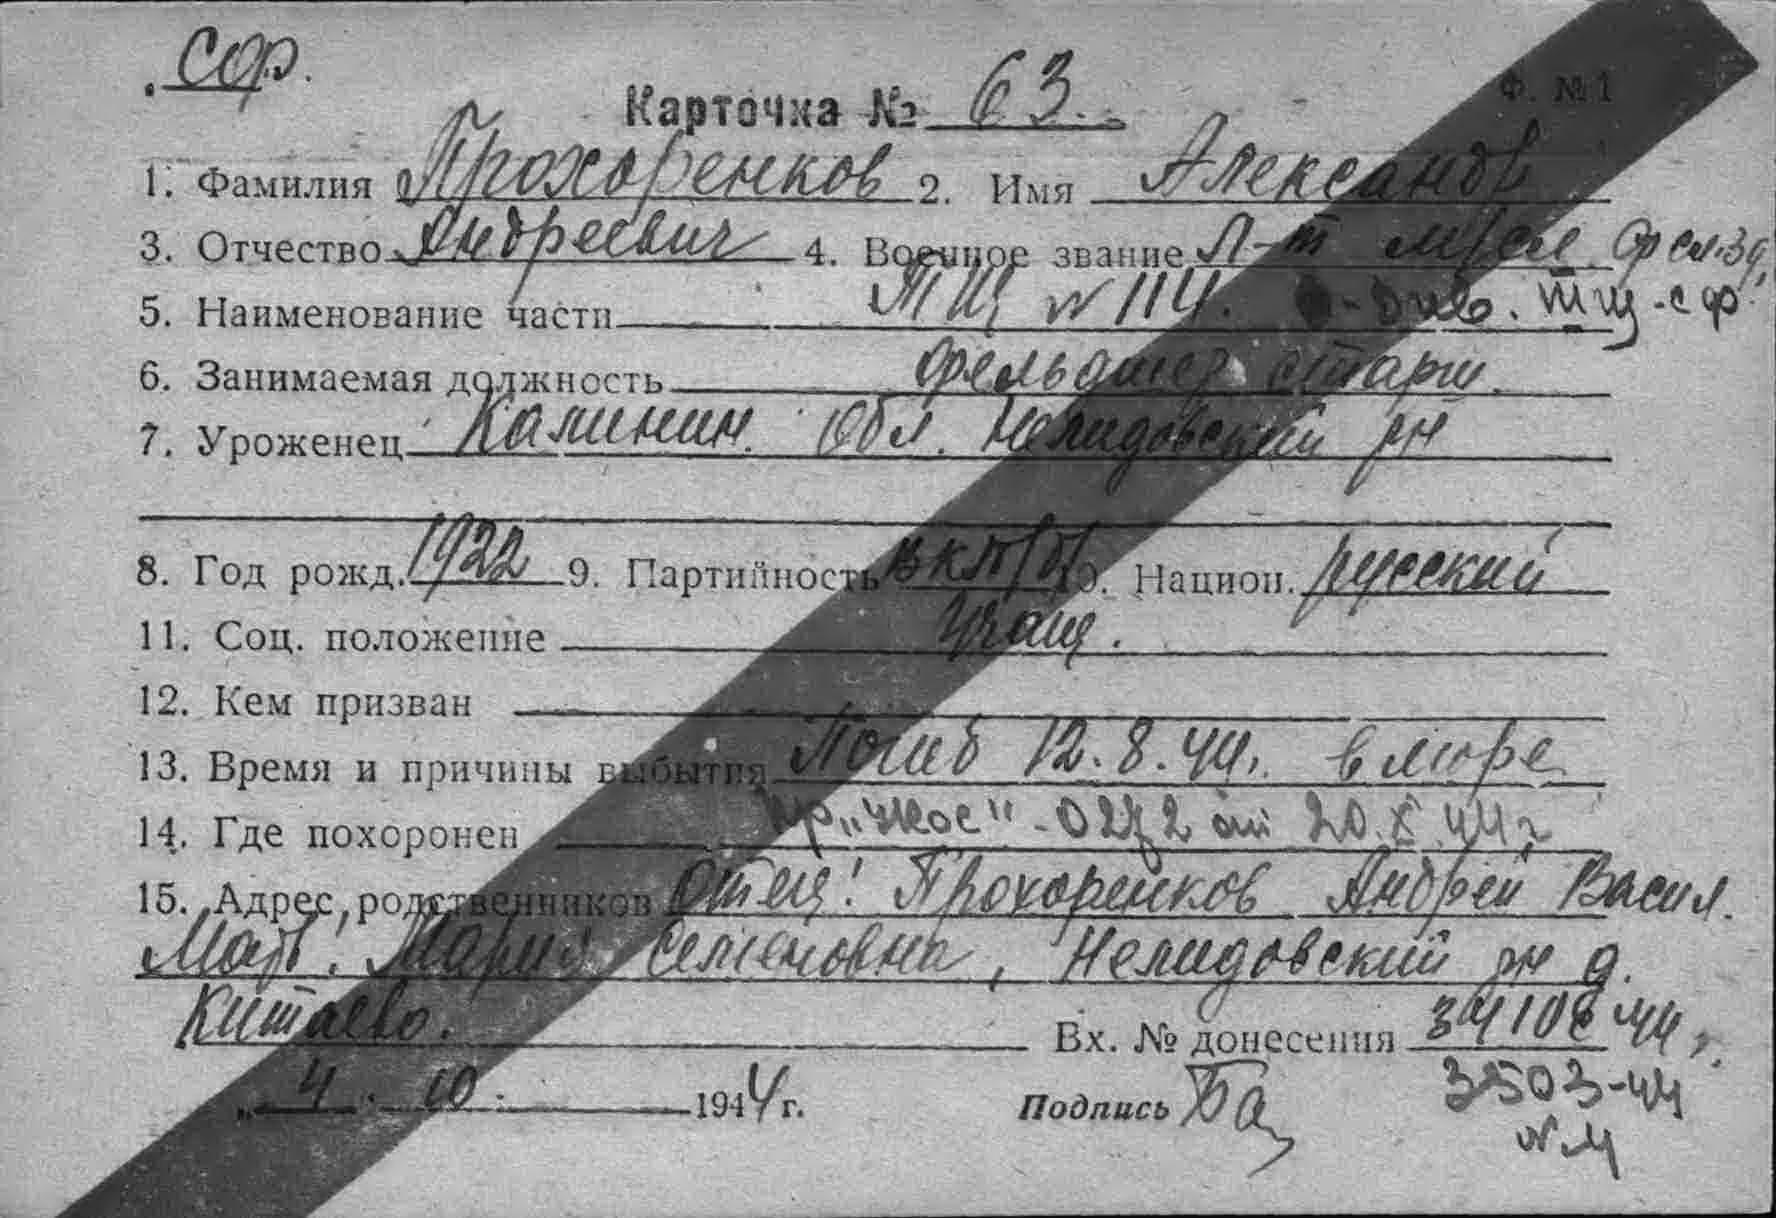 СФ.
Ф. №1
Карточка № 63.
1. Фамилия Прохоренков 2. Имя Александр
3. Отчество Андреевич 4. Военное звание Л-т м/сл
5. Наименование части ТЩ № 114. див. ТЩ-СФ
6. Занимаемая должность фельдшер старш.
7. Уроженец Калинин. Обл. Нелидовский рн
8. Год рожд. 1922 9. Партийность ВКП/б/ 10. Национ. русский
11. Соц. положение Учащ.
12. Кем призван
13. Время и причины выбытия Погиб 12.8.44г. в море
14. Где похоронен от 20.X.44г
15. Адрес родственников Отец: Прохоренков Андрей Васил.
Мать: Мария Семеновна, Нелидовский рн д.
Китаево.
Вх. № донесения 44г.
„ 4 . 10. 1944 г. Подпись
3503-44